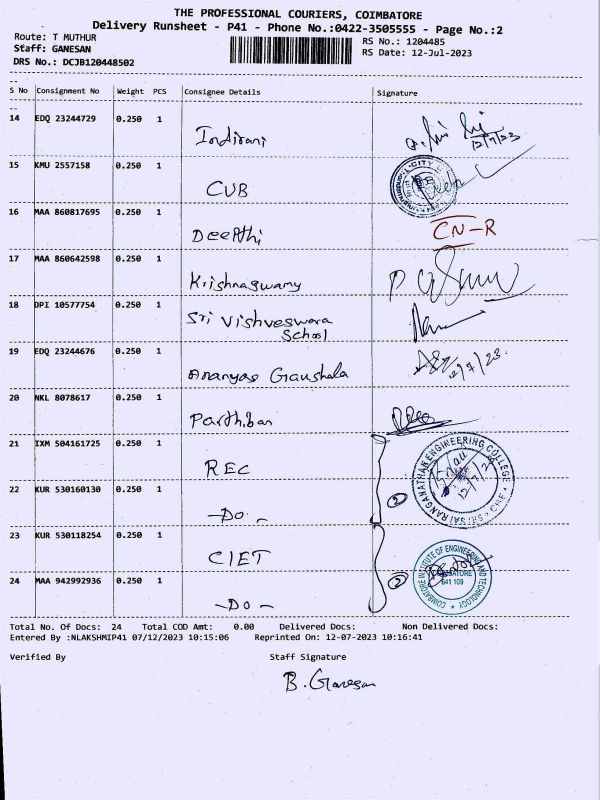 THE PROFESSIONAL COURIERS, COIMBATORE
Delivery Runsheet - P41 - Phone No.:0422-3505555 - Page No.:2
Route: T MUTHUR RS No.: 1204485
Staff: GANESAN RS Date: 12-Jul-2023
DRS No.: DCJB120448502
S No Consignment No Weight PCS Consignee Details Signature
14 EDQ 23244729 0.250 1 Indirani 12/7/23
15 KMU 2557158 0.250 1 CUB
16 MAA 860817695 0.250 1 Deepthi CN-R
17 MAA 860642598 0.250 1 Krishnaswamy
18 DPI 10577754 0.250 1 Sri Vishveswara
School
19 EDQ 23244676 0.250 1 Ananyas Gaushala 12/7/23.
20 NKL 8078617 0.250 1 Parthiban
21 IXM 504161725 0.250 1 REC
22 KUR 530160130 0.250 1 -DO- 2
23 KUR 530118254 0.250 1 CIET
24 MAA 942992936 0.250 1 -DO- 2
RANGANATHAN ENGINEERING COLLEGE
COIMBATORE INSTITUTE OF ENGINEERING AND TECHNOLOGY
641 109
Total No. Of Docs: 24 Total COD Amt: 0.00 Delivered Docs: Non Delivered Docs:
Entered By :NLAKSHMIP41 07/12/2023 10:15:06 Reprinted On: 12-07-2023 10:16:41
Verified By Staff Signature
B. Ganesan